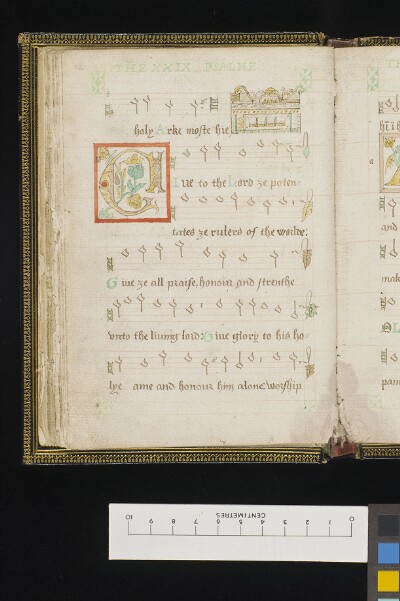 THE XXIX PSALME
holy Arke moste hie
G Iue to the Lord ye poten-
tates ye rulers of the worlde:
Giue ye all praise, honour and strenthe
vnto the liuing lord: Giue glory to his ho
lye ame and honour him alone worship
TH
and
mak
pain
10 9 8 7 6 5 4 3 2 1 0
CENTIMETRES